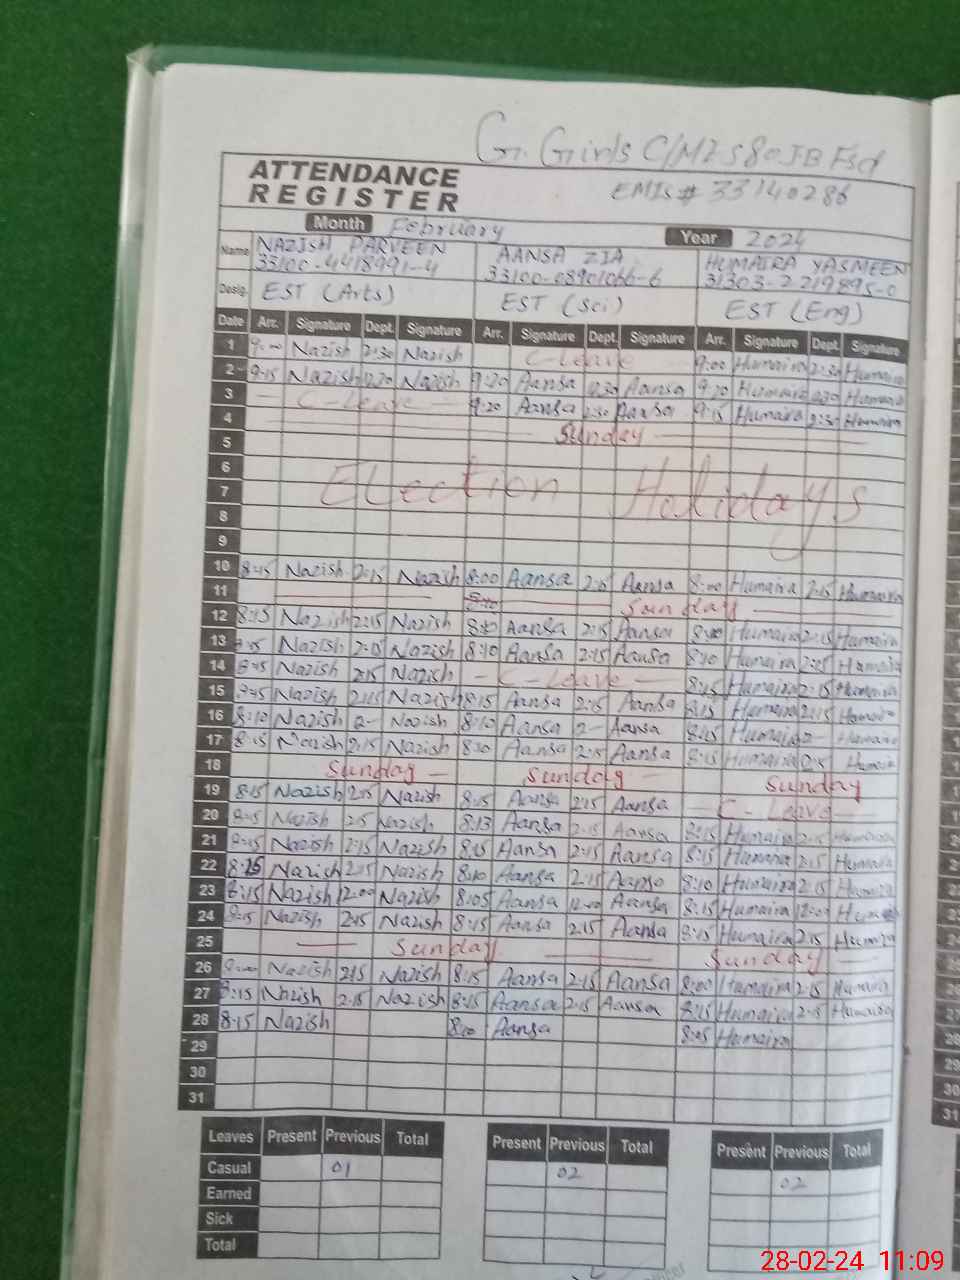 G. Girls C/MZ S 80 JB Fsd
ATTENDANCE
REGISTER
EMIS # 33140286
Month February Year 2024
Name NAZISH PARVEEN AANSA ZIA HUMAIRA YASMEEN
33100-4418991-4 33100-08901066-6 31303-2219895-0
Desig. EST (Arts) EST (Sci) EST (Eng)
Date Arr. Signature Dept. Signature Arr. Signature Dept. Signature Arr. Signature Dept. Signature
1 9:00 Nazish 2:30 Nazish C-Leave 9:00 Humaira 2:30 Humaira
2 9:15 Nazish 12:30 Nazish 9:20 Aansa 12:30 Aansa 9:20 Humaira 12:30 Humaira
3 C-Leave 9:20 Aansa 2:30 Aansa 9:15 Humaira 2:30 Humaira
4 Sunday
5
6
7 Election Holidays
8
9
10 8:45 Nazish 2:15 Nazish 8:00 Aansa 2:15 Aansa 8:00 Humaira 2:15 Humaira
11 Sunday
12 8:15 Nazish 2:15 Nazish 8:10 Aansa 2:15 Aansa 8:10 Humaira 2:15 Humaira
13 Nazish 2:15 Nazish 8:10 Aansa 2:15 Aansa 8:10 Humaira 2:15 Humaira
14 8:45 Nazish 2:15 Nazish C-Leave 8:15 Humaira 2:15 Humaira
15 Nazish 2:15 Nazish 8:15 Aansa 2:15 Aansa 8:15 Humaira 2:15 Humaira
16 8:10 Nazish 2- Nazish 8:10 Aansa 2- Aansa 8:15 Humaira 2- Humaira
17 8:15 Nazish 2:15 Nazish 8:10 Aansa 2:15 Aansa 8:15 Humaira 2:15 Humaira
18 Sunday Sunday Sunday
19 8:15 Nazish 2:15 Nazish 8:15 Aansa 2:15 Aansa C-Leave
20 8:15 Nazish 2:15 Nazish 8:13 Aansa 2:15 Aansa 8:15 Humaira 2:15 Humaira
21 8:15 Nazish 2:15 Nazish 8:15 Aansa 2:15 Aansa 8:15 Humaira 2:15 Humaira
22 8:15 Nazish 2:15 Nazish 8:10 Aansa 2:15 Aansa 8:10 Humaira 2:15 Humaira
23 8:15 Nazish 12:00 Nazish 8:05 Aansa 12:00 Aansa 8:15 Humaira 12:00 Humaira
24 8:15 Nazish 2:15 Nazish 8:15 Aansa 2:15 Aansa 8:15 Humaira 2:15 Humaira
25 Sunday Sunday
26 8:00 Nazish 2:15 Nazish 8:15 Aansa 2:15 Aansa 8:00 Humaira 2:15 Humaira
27 8:15 Nazish 2:15 Nazish 8:15 Aansa 2:15 Aansa 8:15 Humaira 2:15 Humaira
28 8:15 Nazish 8:10 Aansa 8:05 Humaira
29
30
31
Leaves Present Previous Total Present Previous Total Present Previous Total
Casual 01 02 02
Earned
Sick
Total
28-02-24 11:09